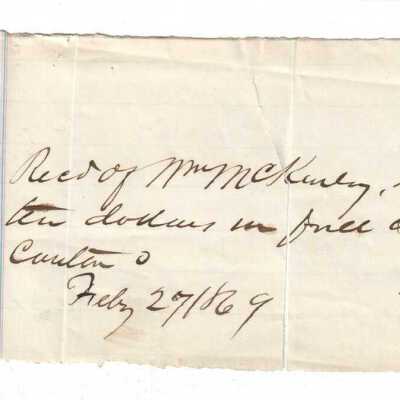 Recd of Wm McKinley,
ten dollars in full
Canton O
Feby 27 1869